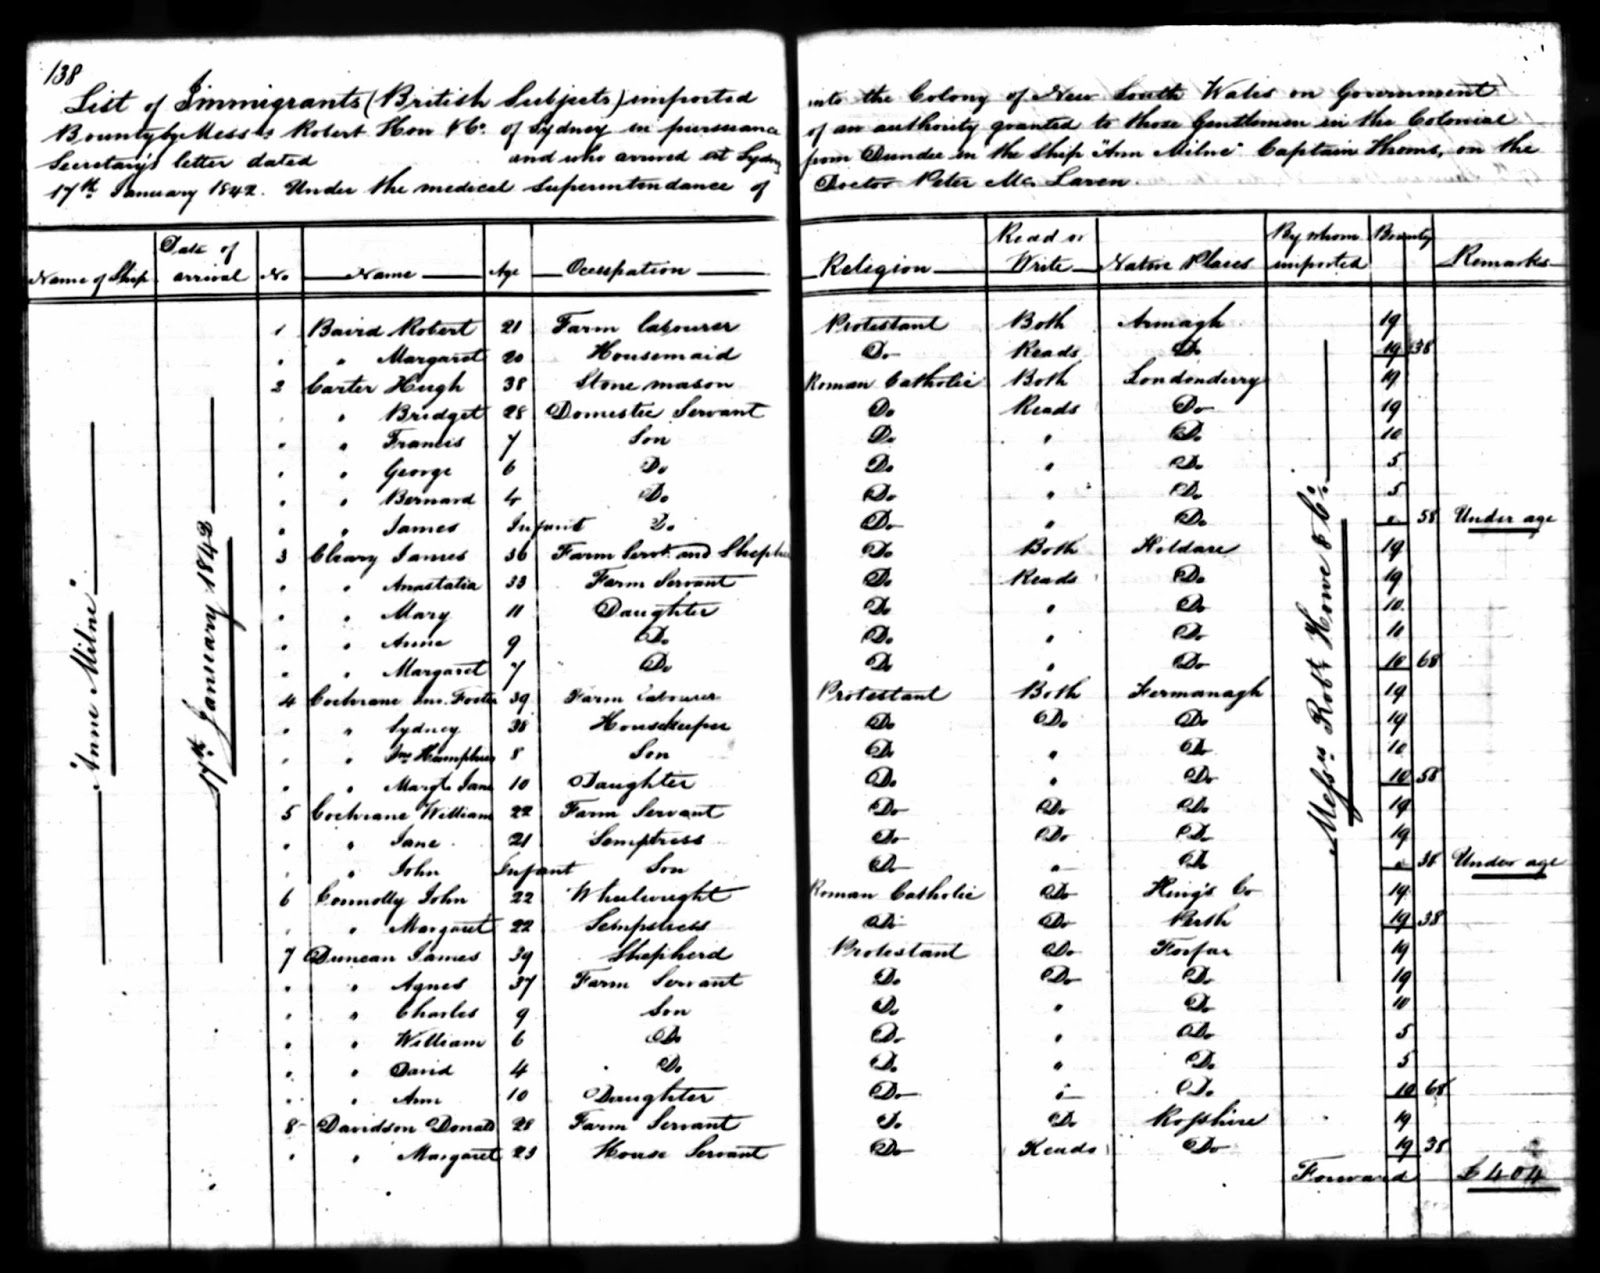 138
List of Immigrants (British Subjects) imported into the Colony of New South Wales on Government
Bounty by Mess rs Robert How & Co. of Sydney in pursuance of an authority granted to those Gentlemen in the Colonial
Secretary's letter dated and who arrived at Sydney from Dundee in the Ship "Ann Milne" Captain Thoms, on the
17th January 1842. Under the medical Superintendance of Doctor Peter Mc Laren.
Name of Ship Date of arrival No Name Age Occupation Religion Read or Write Native Places By whom imported Bounty Remarks
"Anne Milne"
17th January 1842
Messrs Robt Howe & Co.
1 Baird Robert 21 Farm labourer Protestant Both Armagh 19
" " Margaret 20 Housemaid Do Reads Do 19 38
2 Carter Hugh 38 Stone mason Roman Catholic Both Londonderry 19
" " Bridget 28 Domestic Servant Do Reads Do 19
" " Francis 7 Son Do " Do 10
" " George 6 Do Do " Do 5
" " Bernard 4 Do Do " Do 5
" " James Infant Do Do " Do " 58 Under age
3 Cleary James 36 Farm Servt. and Shephe Do Both Kildare 19
" " Anastatia 33 Farm Servant Do Reads Do 19
" " Mary 11 Daughter Do " Do 10
" " Anne 9 Do Do " Do 10
" " Margaret 7 Do Do " Do 10 68
4 Cochrane Jno. Foster 39 Farm labourer Protestant Both Fermanagh 19
" " Sydney 38 Housekeeper Do Do Do 19
" " Jno Humphrus 8 Son Do " Do 10
" " Margt. Jane 10 Daughter Do " Do 10 58
5 Cochrane William 22 Farm Servant Do Do Do 19
" " Jane 21 Semptress Do Do Do 19
" " John Infant Son Do " Do " 38 Under age
6 Connolly John 22 Wheelwright Roman Catholic Do King's Co 19
" " Margaret 22 Sempstress Do Do Perth 19 38
7 Duncan James 39 Shepherd Protestant Do Forfar 19
" " Agnes 37 Farm Servant Do Do Do 19
" " Charles 9 Son Do " Do 10
" " William 6 Do Do " Do 5
" " David 4 Do Do " Do 5
" " Ann 10 Daughter Do " Do 10 68
8 Davidson Donald 28 Farm Servant Do Do Rosshire 19
" " Margaret 23 House Servant Do Reads Do 19 38
Forward £404